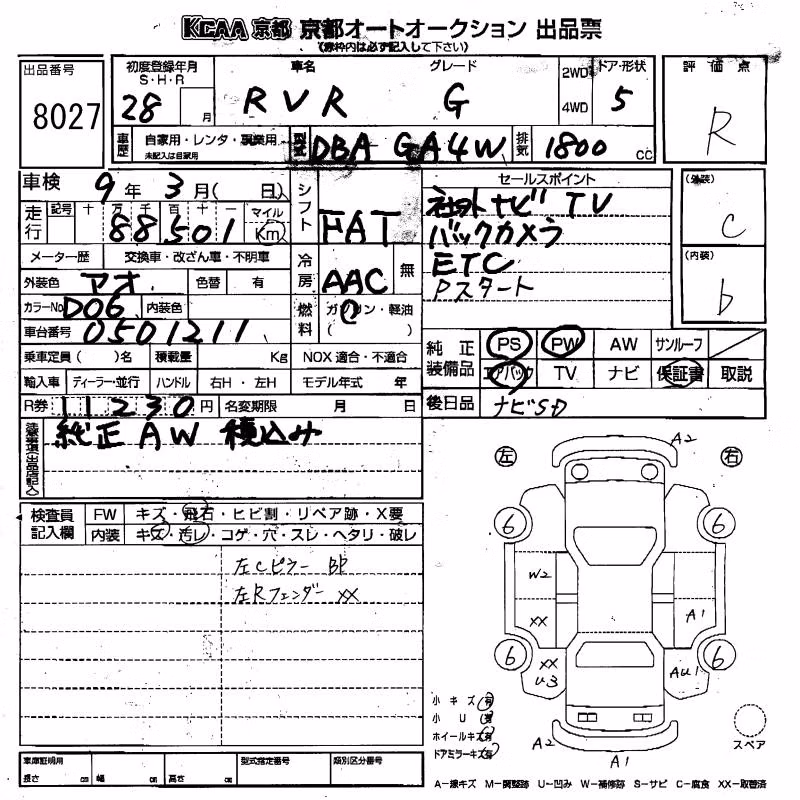 KCAA 京都 京都オートオークション 出品票
(赤枠内は必ず記入して下さい)
出品番号 8027
初度登録年月 S・H・R 28 月
車名 RVR
グレード G
2WD 4WD
ドア・形状 5
評価点 R
車歴 自家用・レンタ・事業用 未記入は自家用
型式 DBA GA4W
排気 1800 CC
車検 9年 3月( 日)
シフト FAT
セールスポイント
社外ナビ TV
バックカメラ
ETC
Pスタート
(外装) C
(内装) b
走行 記号 十 万 千 百 十 一 88,501 マイル Km
メーター歴 交換車・改ざん車・不明車
冷房 AAC 無
外装色 アオ 色替 有
カラーNo D06 内装色
燃料 ガソリン・軽油 ( )
車台番号 0501211
乗車定員( )名 積載量 Kg NOX 適合・不適合
純正装備品 PS PW AW サンルーフ
エアバック TV ナビ 保証書 取説
輸入車 ディーラー・並行 ハンドル 右H・左H モデル年式 年
R券 11230円 名変期限 月 日
後日品 ナビSD
純正AW 積込み
検査員記入欄 FW キズ・飛石・ヒビ割・リペア跡・X要
内装 キズ・汚レ・コゲ・穴・スレ・ヘタリ・破レ
左Cピラー BP
左Rフェンダー XX
左 右
A2
6 6
W2
XX A1
6 6
XX U3 AU1
A2 A1
小キズ 有
小U 有
ホイールキズ 有
ドアミラーキズ 有
スペア
車庫証明用 長さ cm 幅 cm 高さ cm 型式指定番号 類別区分番号
A-線キズ M-調整跡 U-凹み W-補修跡 S-サビ C-腐食 XX-取替済